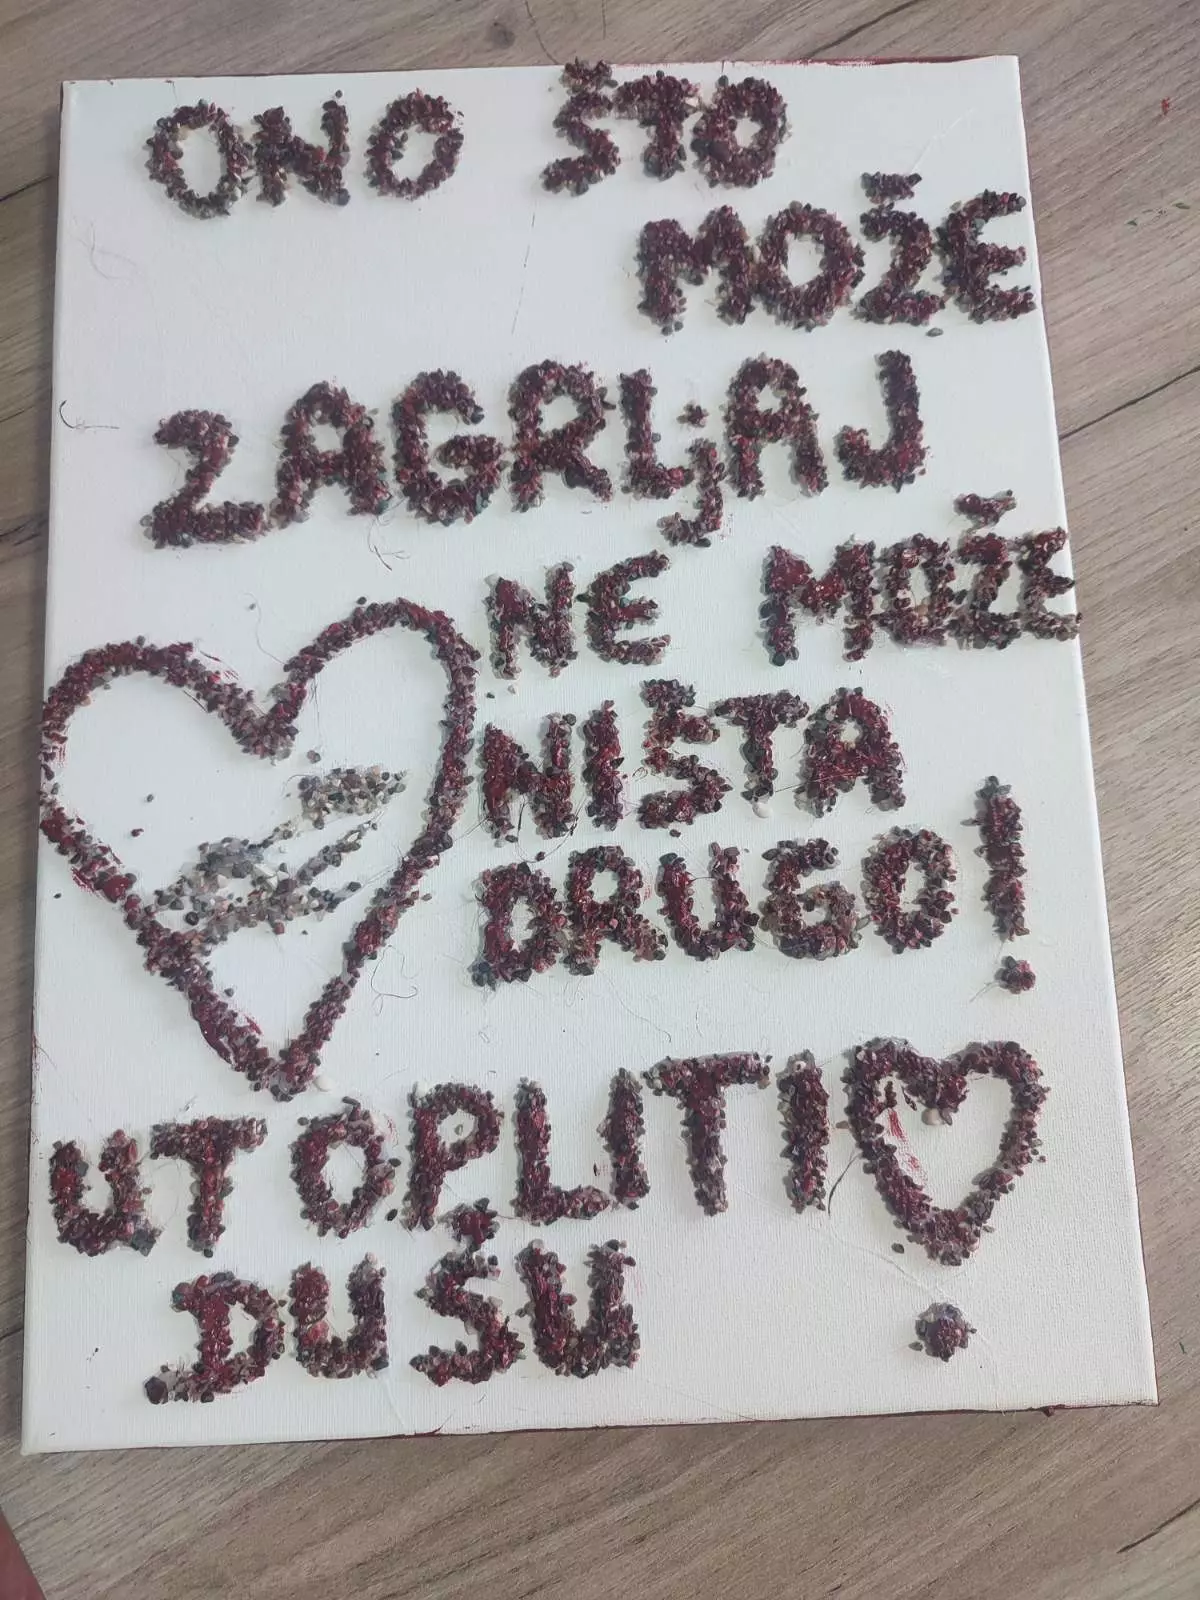 ONO ŠTO
MOŽE
ZAGRLjAJ
NE MOŽE
NIŠTA
DRUGO!
UTOPLITI
DUŠU